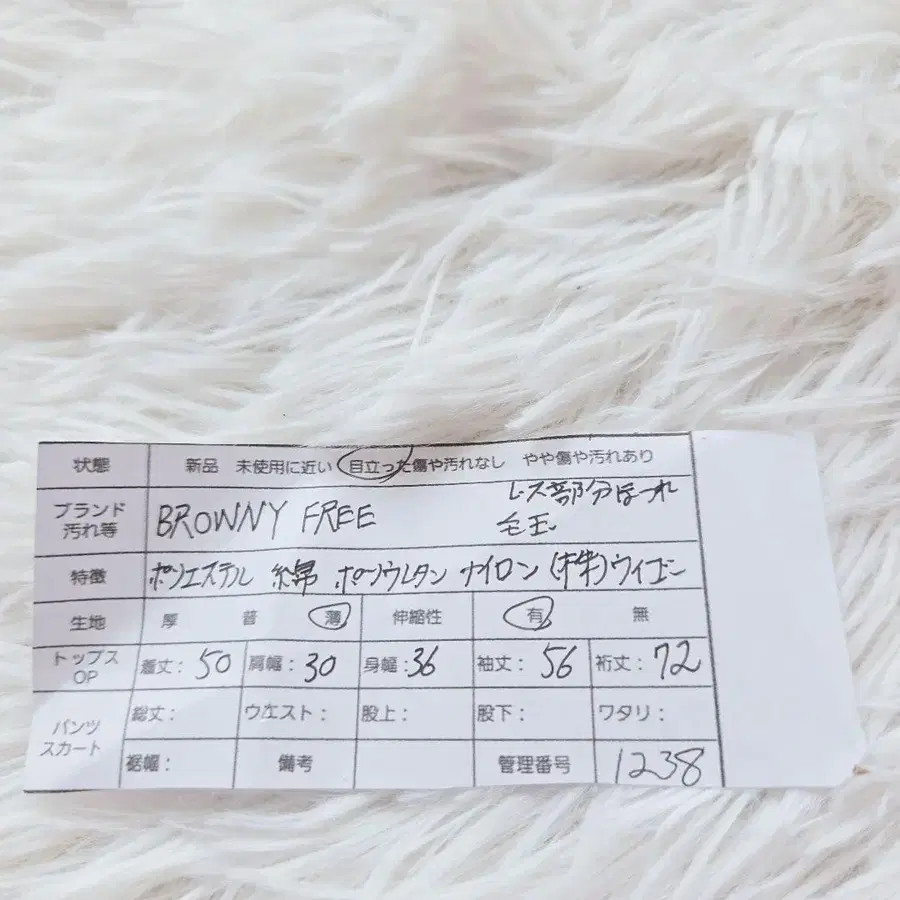 状態 新品 未使用に近い 目立った傷や汚れなし やや傷や汚れあり
ブランド 汚れ等 BROWNY FREE レース部分ほつれ
毛玉
特徴 ポリエステル 綿 ポリウレタン ナイロン (株)ウィゴー
生地 厚 普 薄 伸縮性 有 無
トップス OP 着丈: 50 肩幅: 30 身幅: 36 袖丈: 56 裄丈: 72
パンツ スカート 総丈: ウエスト: 股上: 股下: ワタリ:
裾幅: 備考 管理番号 1238